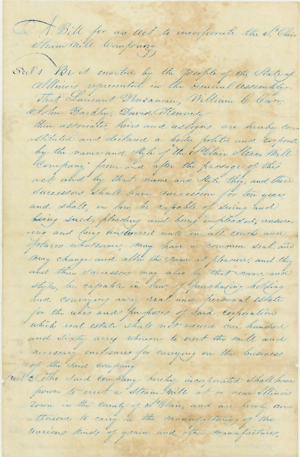 A Bill for an act to incorporate the St. Clair
Steam Mill Company
Sec 1 Be it enacted by the People of the State of
Illinois represented in the General Assembly
That Laurent William C.
John David
their associates, heirs and assigns are hereby con
stituted and declared a body politic and corporate
by the name and style of the "St Clair Steam Mill
Company" from and after the passage of this
act and by that name and style they and their
successors shall have succession for ten years
and shall, in law be capable of suing and
being sued, pleading and being impleaded, answer
ing and being answered unto in all courts and
places whatsoever, may have a common seal, and
may change and alter the same at pleasure; and they
and their successors may also by that name and
style, be capable in law of purchasing holding
and conveying away real and personal estate
for the uses and purposes of said corporation
which real estate shall not exceed one hundred
and sixty acres whereon to erect the mill and
necessary for carrying on the business
of the said company
Sec 2 The said Company hereby incorporated shall have
power to erect a Steam Mill at or near Illinois
Town in the county of St Clair, and are
to carry on the manufacturing of the
various kinds of grain and other manufactures,